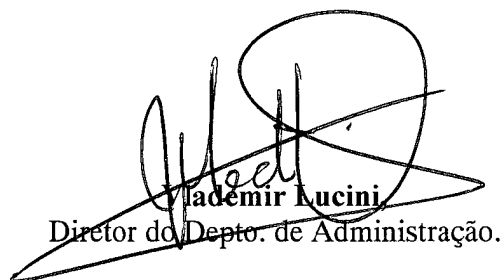 Vlademir Lucini,
Diretor do Depto. de Administração.